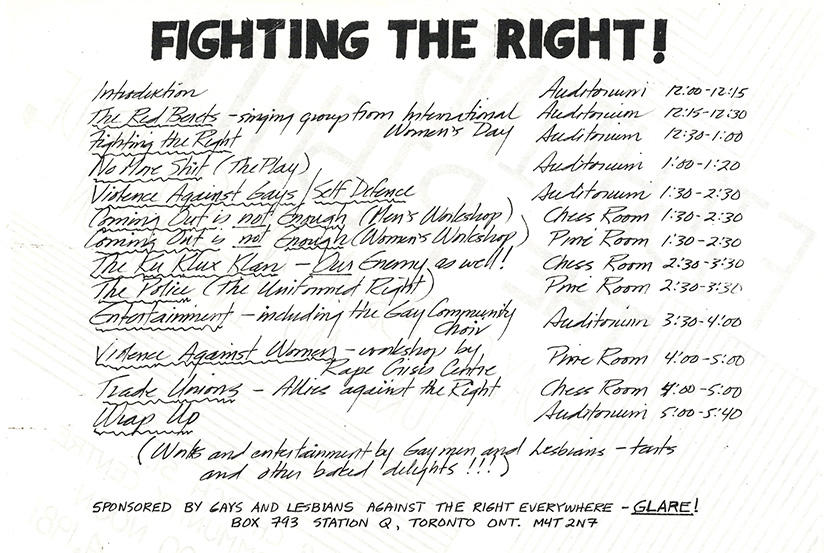 FIGHTING THE RIGHT!
Introduction Auditorium 12:00-12:15
The Red Berets - singing group from International Auditorium 12:15-12:30
Women's Day
Fighting the Right Auditorium 12:30-1:00
No More Shit (The Play) Auditorium 1:00-1:20
Violence Against Gays/Self Defence Auditorium 1:30-2:30
Coming Out is not Enough (Men's Workshop) Chess Room 1:30-2:30
Coming Out is not Enough (Women's Workshop) Pine Room 1:30-2:30
The Ku Klux Klan - Our Enemy as well! Chess Room 2:30-3:30
The Police (The Uniformed Right) Pine Room 2:30-3:30
Entertainment - including the Gay Community Auditorium 3:30-4:00
Choir
Violence Against Women - workshop by Pine Room 4:00-5:00
Rape Crisis Centre
Trade Unions - Allies against the Right Chess Room 4:00-5:00
Wrap Up Auditorium 5:00-5:40
(Works and entertainment by Gay men and Lesbians - tarts
and other baked delights!!!)
SPONSORED BY GAYS AND LESBIANS AGAINST THE RIGHT EVERYWHERE - GLARE!
BOX 793 STATION Q, TORONTO ONT. M4T 2N7